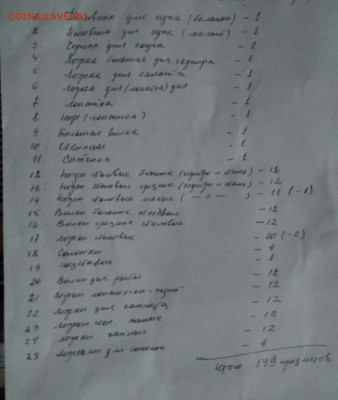 COINS.LAVE.RU
Половник для супа (большой) - 1
2. Половник для супа (малый) - 1
3. Черпак для соуса - 1
4. Ложка большая для гарнира - 1
5. Ложка для салата - 1
6. Ложка для (лопатка) для - 1
7 Лопатка - 1
8 Нож (лопатка) - 1
9 Большая вилка - 1
10. Щипцы - 1
11. Ситечко - 1
12. Ножи столовые большие - 12
13. Ножи столовые средние - 12
14 Ножи столовые малые (— " —) - 11 (-1)
15 Вилки большие столовые - 12
16 Вилки средние столовые - 12
17 Ложки столовые - 10 (-2)
18 Солонки - 4
19 Подставки - 1
20 Вилки для рыбы - 12
21 Ложки лопатки - 12
22 Ложки для компота - 12
23 Ложки малые - 12
24 Ложки чайные - 12
25 Ложечки для солонок - 4
Итого 149 предметов